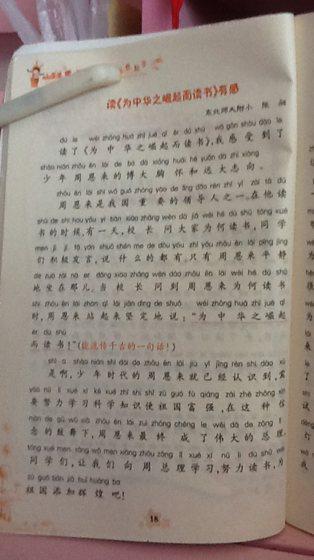 读《为中华之崛起而读书》有感
东北师大附小 陈
dú le wèi zhōng huá zhī jué qǐ ér dú shū wǒ gǎn shòu dào le
读了《为中华之崛起而读书》,我感受到了
shào nián zhōu ēn lái de bó dà xiōng huái hé yuǎn dà zhì xiàng
少年周恩来的博大胸怀和远大志向。
zhōu ēn lái shì wǒ guó zhòng yào de lǐng dǎo rén zhī yī zài tā dú
周恩来是我国重要的领导人之一。在他读
shū de shí hou yǒu yì tiān xiào zhǎng wèn dà jiā wèi hé dú shū tóng xué
书的时候,有一天,校长问大家为何读书,同学
men jī jí fā yán shuō shén me de dōu yǒu zhǐ yǒu zhōu ēn lái píng jìng
们积极发言,说什么的都有。只有周恩来平静
de zuò zài nà er dāng xiào zhǎng wèn dào zhōu ēn lái wèi hé dú shū
地坐在那儿。当校长问到周恩来为何读书
shí zhōu ēn lái zhàn qǐ lái jiān dìng de shuō wèi zhōng huá zhī jué qǐ
时,周恩来站起来坚定地说:“为中华之崛起
ér dú shū
而读书!”(能流传千古的一句话!)
shì a shào nián shí dài de zhōu ēn lái jiù yǐ jīng rèn shi dào
是啊,少年时代的周恩来就已经认识到,
yào nǔ lì xué xí kē xué zhī shi shǐ zǔ guó fù qiáng zài zhè zhǒng xìn
要努力学习科学知识使祖国富强,在这种信
niàn de gǔ wǔ xià zhōu ēn lái zuì zhōng chéng le wěi dà de zǒng lǐ
念的鼓舞下,周恩来最终成了伟大的总理。
tóng xué men ràng wǒ men xiàng zhōu zǒng lǐ xué xí nǔ lì dú shū wèi
同学们,让我们向周总理学习,努力读书,为
zǔ guó tiān jiā huī huáng ba
祖国添加辉煌吧!
18